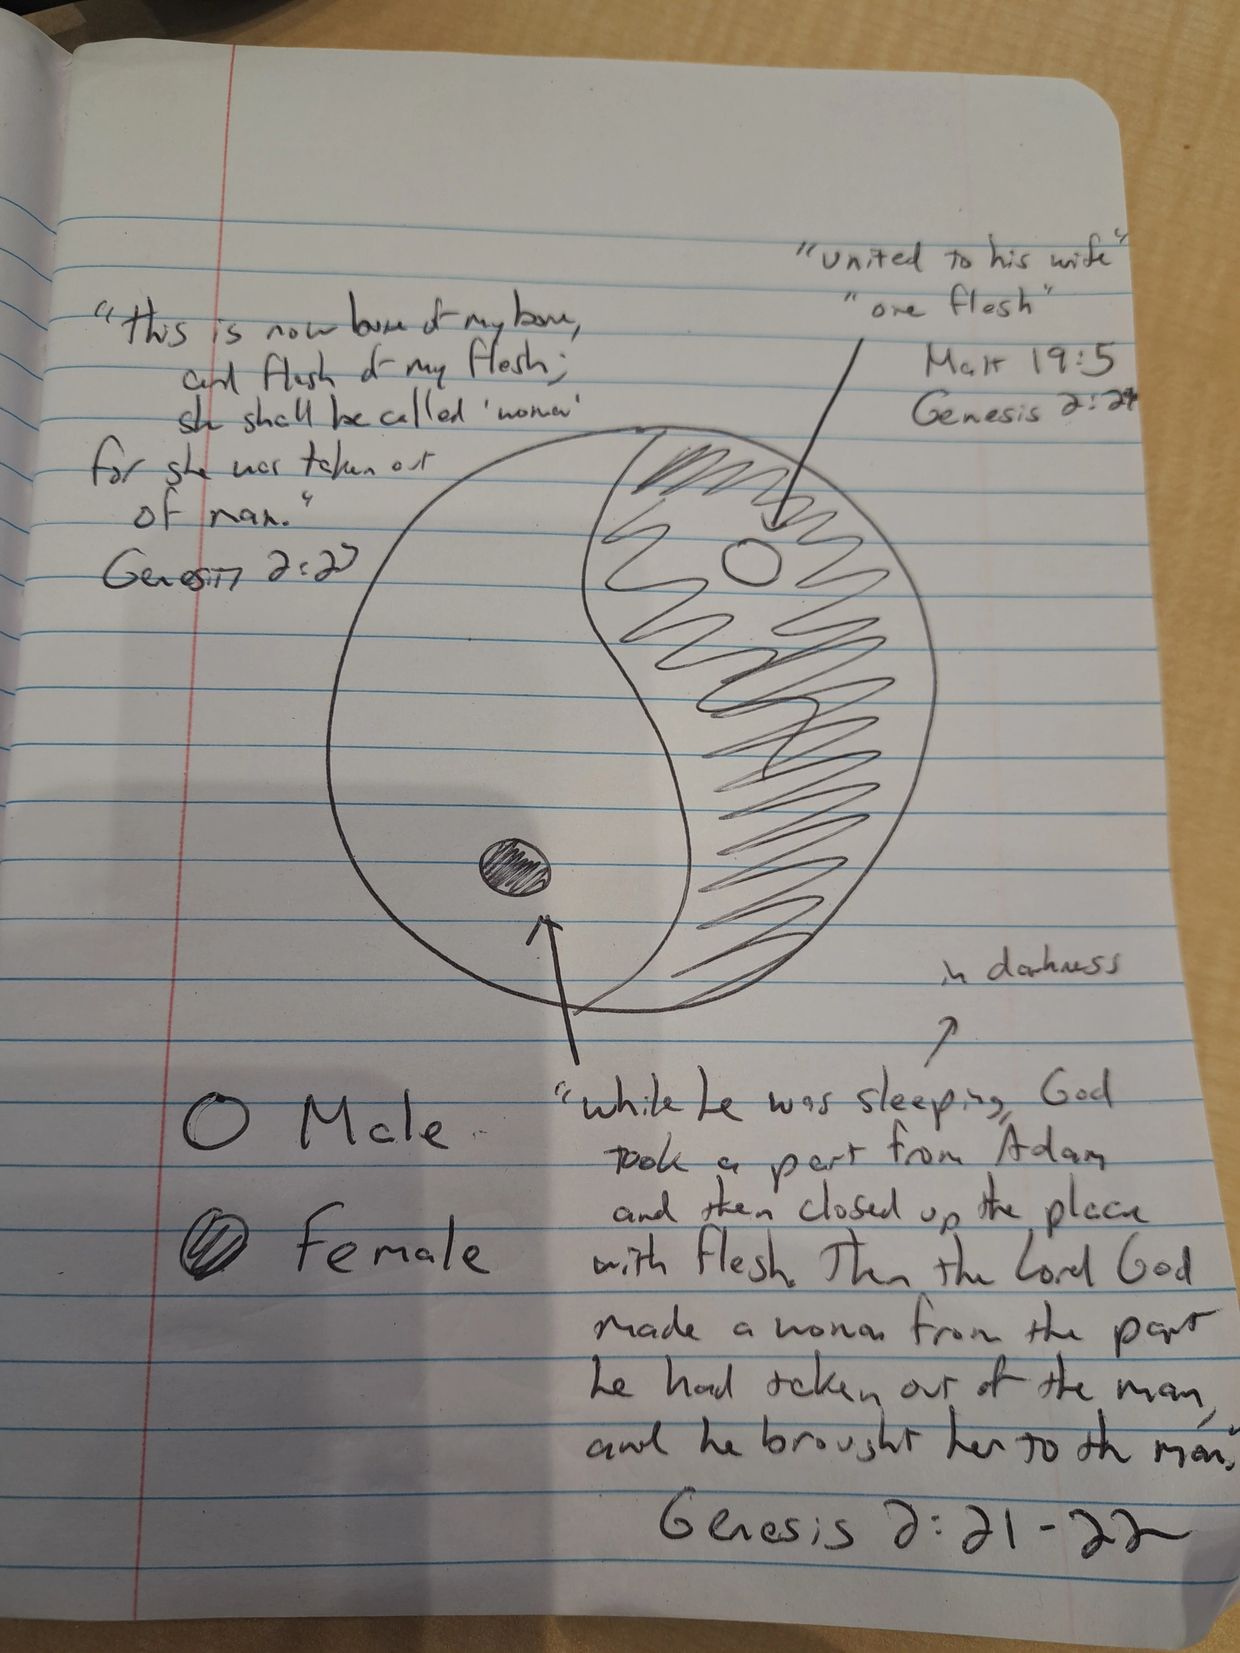 "united to his wife"
"one flesh"
Matt 19:5
Genesis 2:24
"this is now bone of my bone,
and flesh of my flesh;
she shall be called 'woman'
for she was taken out
of man."
Genesis 2:23
in darkness
"while he was sleeping, God
took a part from Adam
and then closed up the place
with flesh. Then the Lord God
made a woman from the part
he had taken out of the man,
and he brought her to the man."
Genesis 2:21-22
Male
Female